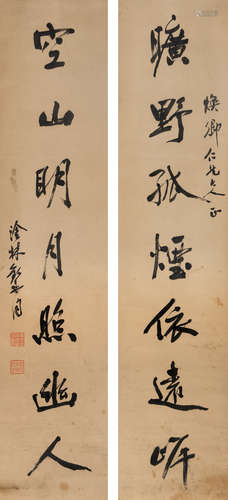 曠野孤煙依遠岍
煥卿仁兄大人正
空山明月照幽人